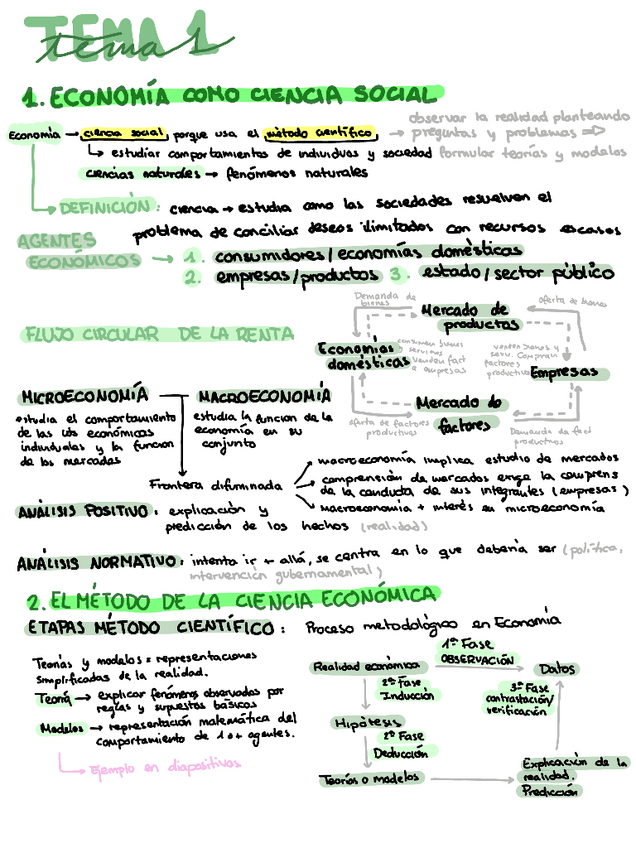 TEMA 1
tema 1
1. ECONOMÍA COMO CIENCIA SOCIAL
Economía → ciencia social, porque usa el método científico → observar la realidad planteando preguntas y problemas ⇒ formular teorías y modelos
↳ estudiar comportamientos de individuos y sociedad
ciencias naturales → fenómenos naturales
DEFINICIÓN: ciencia → estudia como las sociedades resuelven el
problema de conciliar deseos ilimitados con recursos escasos
AGENTES
ECONÓMICOS → 1. consumidores/economías domésticas
2. empresas/productos 3. estado/sector público
FLUJO CIRCULAR DE LA RENTA
Demanda de
bienes
Mercado de
productos
oferta de bienes
Economías
domésticas
consumen bienes
servicios
venden fact
a empresas
venden bienes y
serv. compran
factores
productivos
Empresas
Mercado de
factores
oferta de factores
productivos
Demanda de fact
productivos
MICROECONOMÍA
estudia el comportamiento
de las uds económicas
individuales y la funcion
de los mercados
MACROECONOMÍA
estudia la funcion de la
economía en su
conjunto
Frontera difuminada
macroeconomía implica estudio de mercados
comprensión de mercados exige la comprens
de la conducta de sus integrantes (empresas)
macroeconomía + interés en microeconomía
ANÁLISIS POSITIVO: explicación y
predicción de los hechos (realidad)
ANÁLISIS NORMATIVO: intenta ir + allá, se centra en lo que debería ser (política,
intervención gubernamental)
2. EL MÉTODO DE LA CIENCIA ECONÓMICA
ETAPAS MÉTODO CIENTÍFICO: Proceso metodológico en Economía
Teorías y modelos = representaciones
simplificadas de la realidad.
Teoría → explicar fenómenos observados por
reglas y supuestos básicos
Modelos → representación matemática del
comportamiento de 1 o + agentes.
↳ Ejemplo en diapositivas
Realidad económica
1ª Fase
OBSERVACIÓN
Datos
2ª Fase
Inducción
3ª Fase
contrastación/
verificación
Hipótesis
2ª Fase
Deducción
Teorías o modelos
Explicación de la
realidad.
Predicción